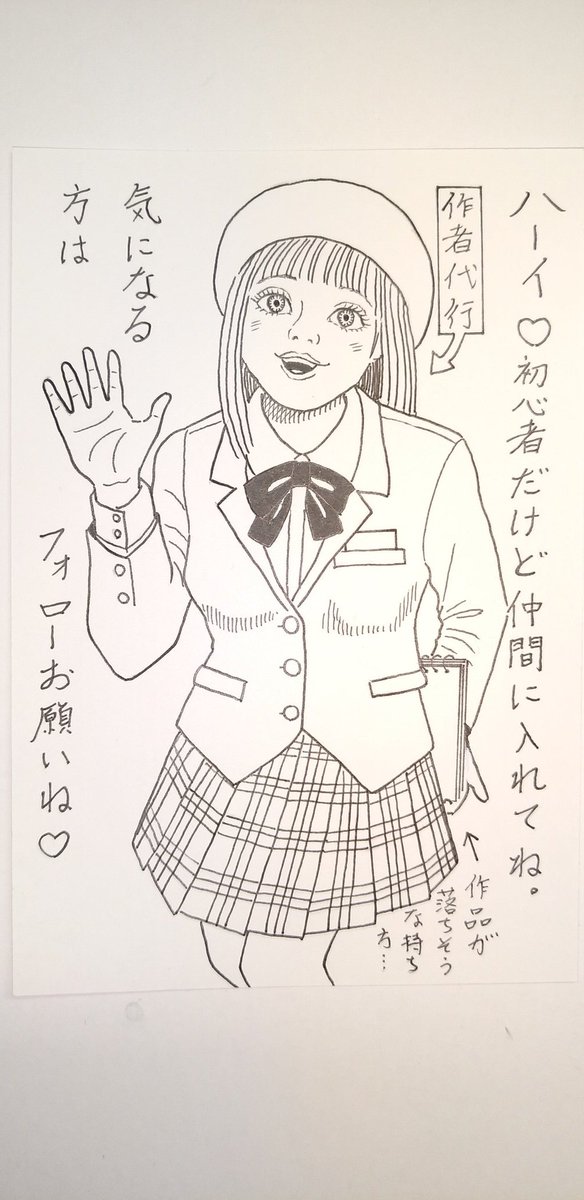 ハーイ♡初心者だけど仲間に入れてね。
作者代行
気になる
方は
フォローお願いね♡
作品が
落ちそう
な持ち
方…